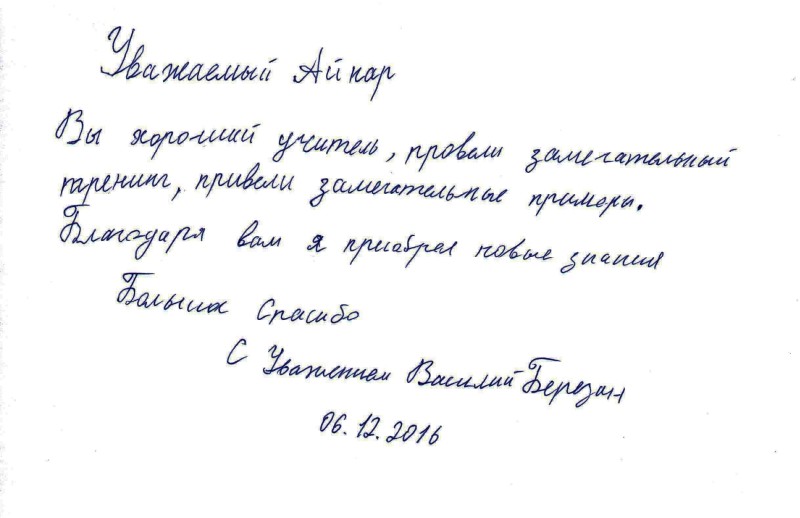 Уважаемый Айнар
Вы хороший учитель, провели замечательный
таренинг, привели замечательные примеры.
Благодаря вам я приабрел новые знания
Больших Спасибо
С Уважением Василий Березан
06.12.2016